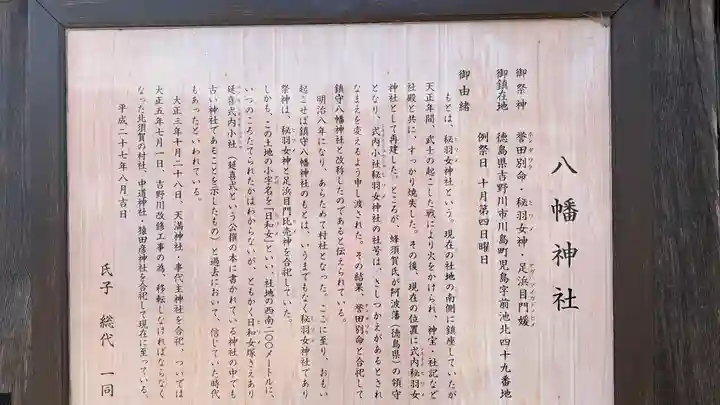 八幡神社
御祭神　誉田別命・秘羽女神・足浜目門媛
御鎮在地　徳島県吉野川市川島町児島字前池北四十九番地
例祭日　十月第四日曜日
御由緒
もとは、秘羽女神社という。現在の社地の南側に鎮座していたが
天正年間、武士の起こした戦により火をかけられ、神宝・社記など
社殿と共に、すっかり焼失した。その後、現在の位置に式内秘羽女
神社として再建した。ところが、蜂須賀氏が阿波藩（徳島県）の領守
となり、式内小社秘羽女神社の社号は、さしつかえがあるとされ
なまえを変えるよう申し渡された。その結果、誉田別命と合祀して
鎮守八幡神社と改称したのであると伝えられている。
明治八年になり、あらためて村社となった。ここに至り、おもい
起こせば鎮守八幡神社のもとは、いうまでもなく秘羽女神であり
祭神は、秘羽女神と足浜目門比売神を合祀していた。
しかも、この土地の小字名を「日和女」といい、社地の西南二〇〇メートルに、
いつのころたてられたかはわからないが、ともかく日和女塚さえあり
延喜式内小社（延喜式という公撰の本に書かれている神社の中でも
古い神社であることを示したもの）と過去において、信じていた時代
もあったといわれている。
大正三年十月二十八日、天満神社・事代主神社を合祀、ついでは
大正五年七月一日、吉野川改修工事の為、移転しなければならなく
なった北須賀の村社、中道神社・猿田彦神社を合祀して現在に至っている。
平成二十七年八月吉日
氏子　総代　一同